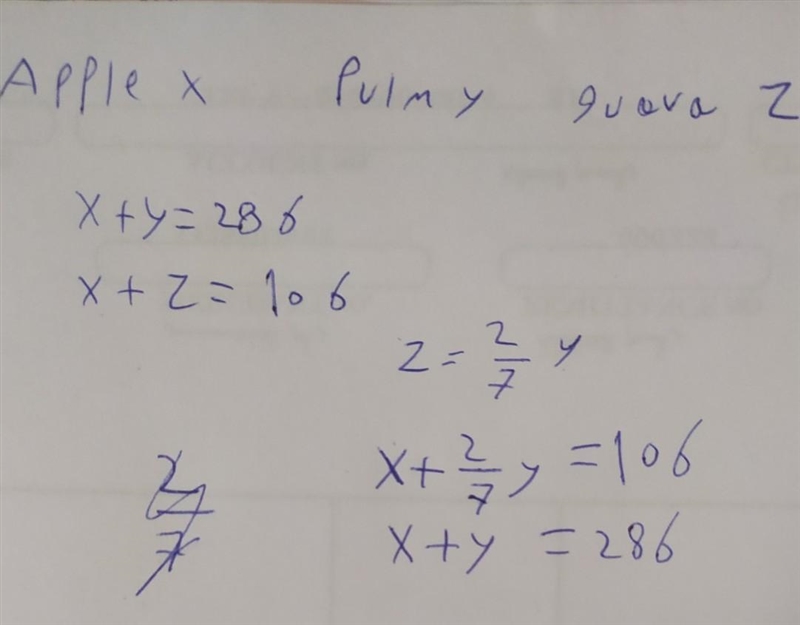 Apple x Pulm y guava z
x + y = 286
x + z = 106
z = 2/7 y
x + 2/7 y = 106
x + y = 286